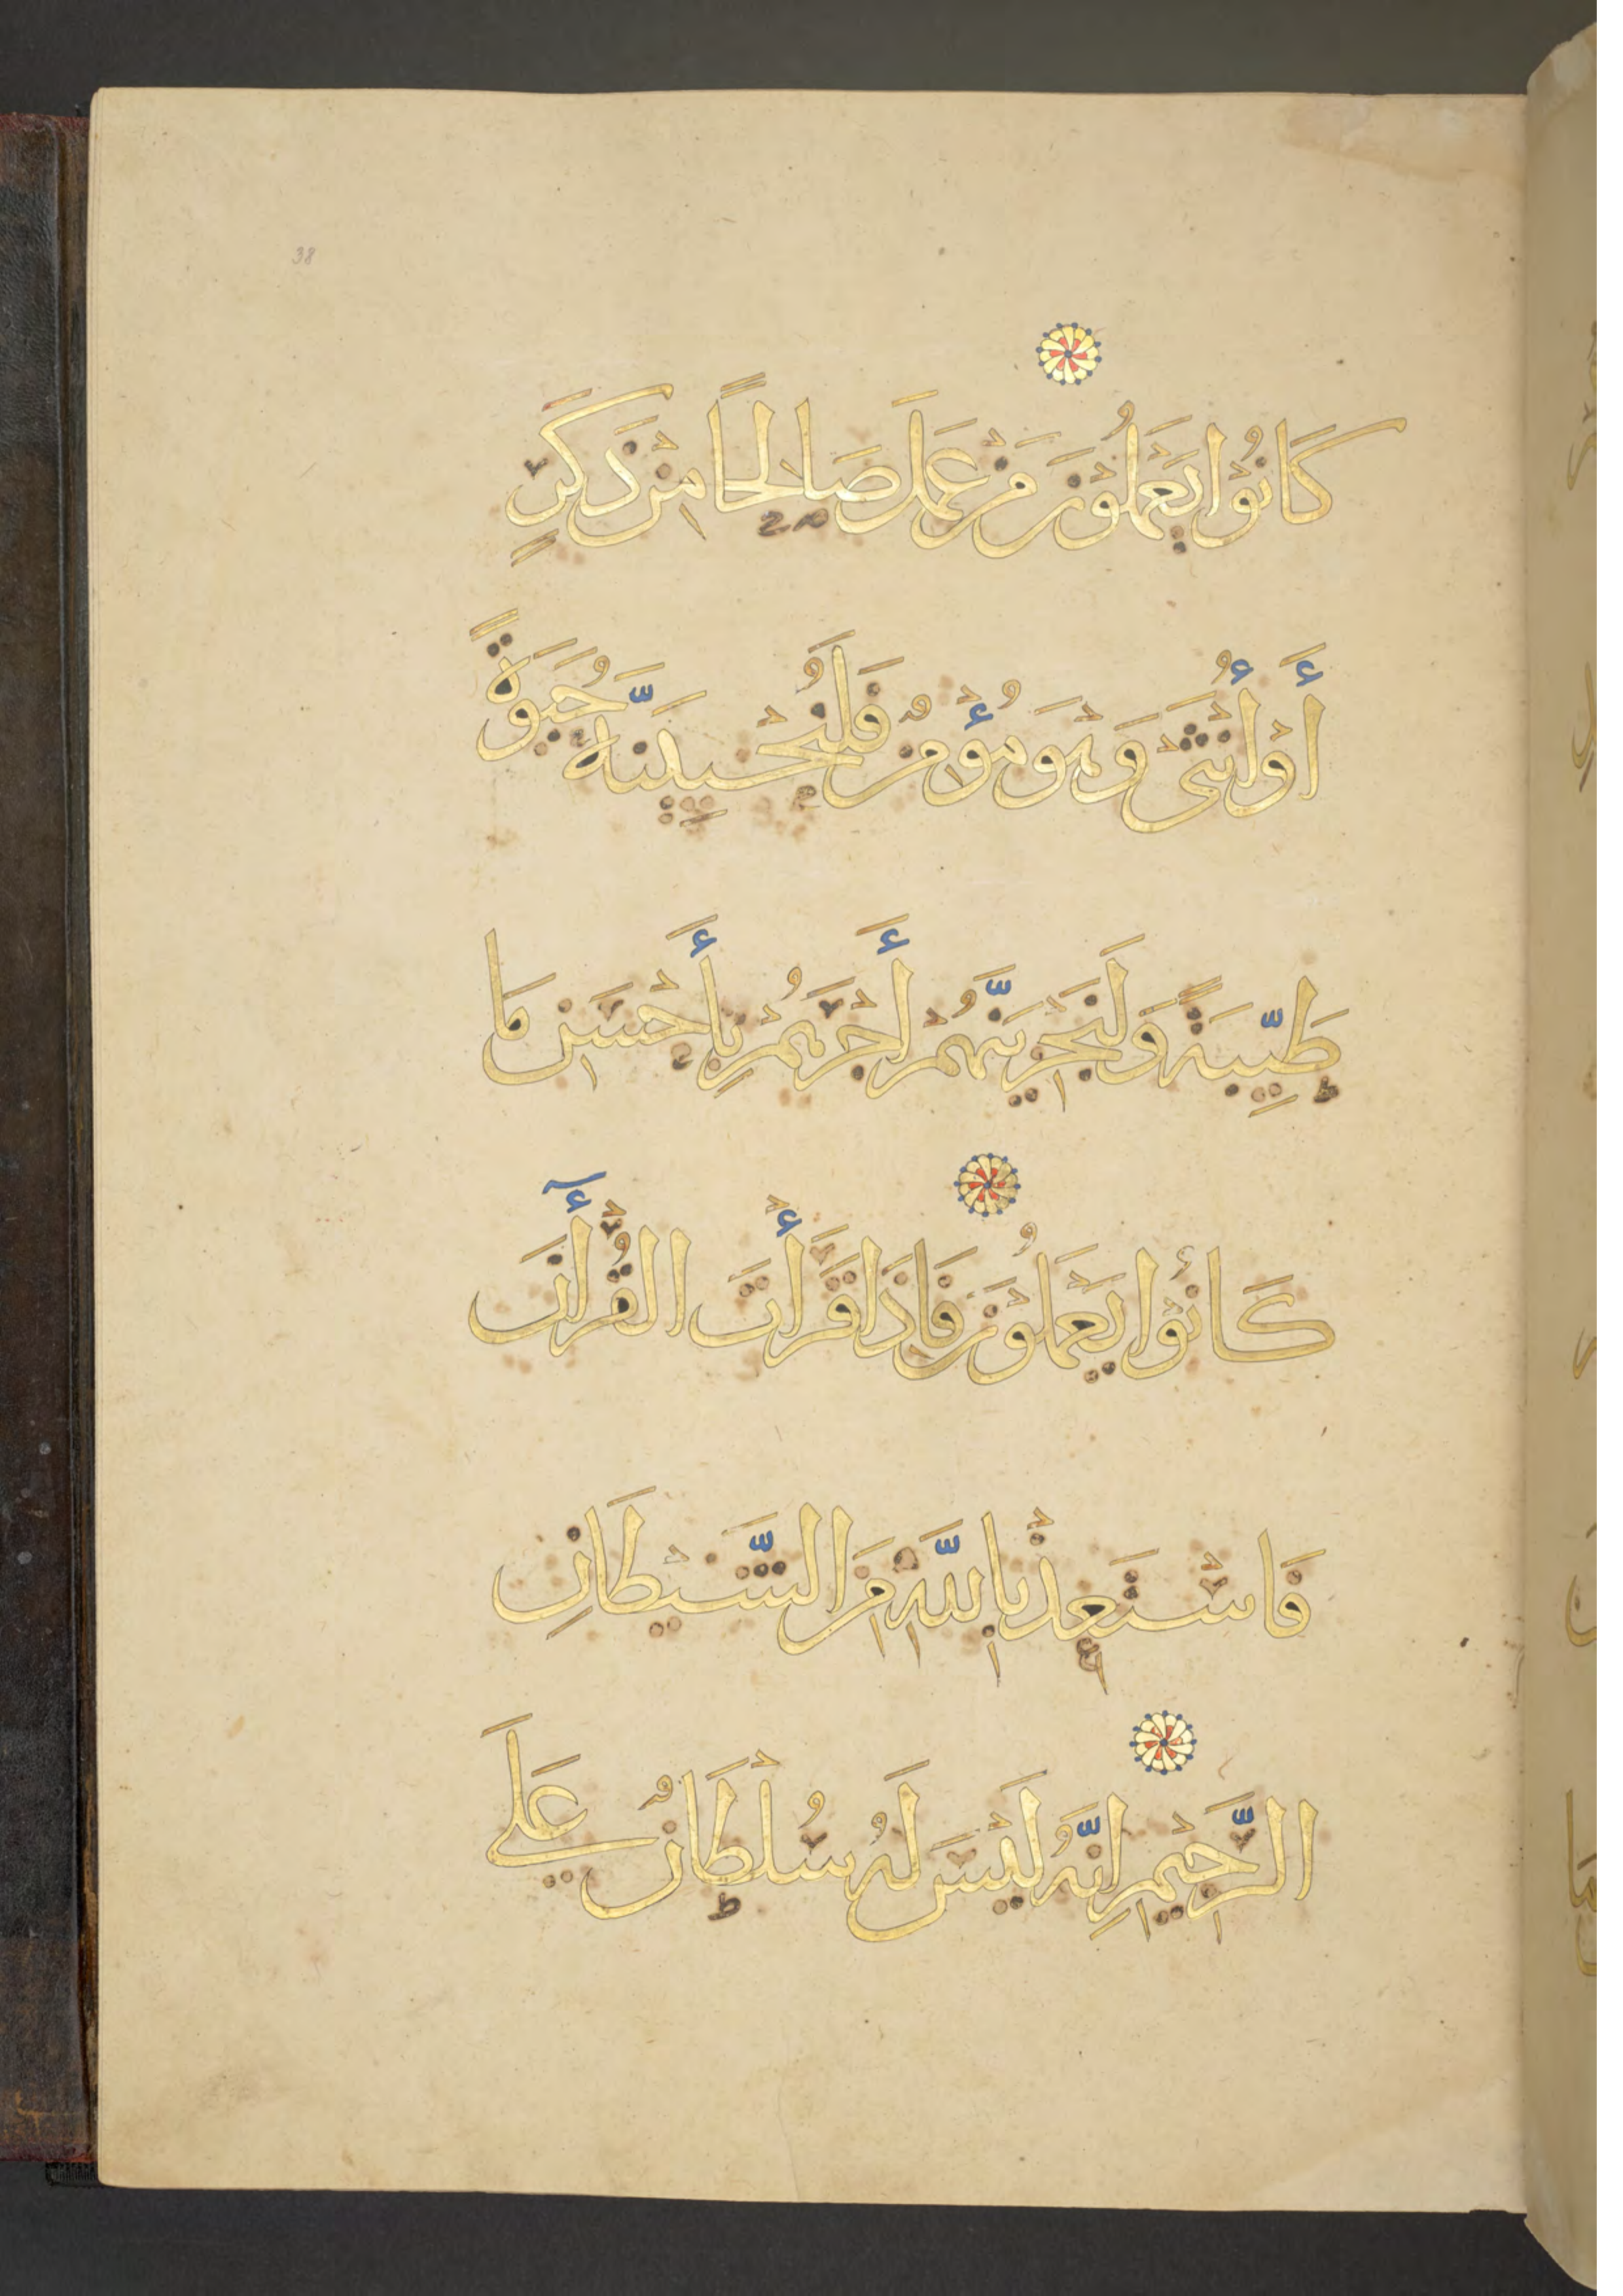 38
كَانُوْا يَعْمَلُوْنَ مَنْ عَمِلَ صَالِحًا مِنْ ذَكَرٍ
أَوْ أُنْثَى وَهْوَ مُؤْمِنٌ فَلَنُحْيِيَنَّهُ حَيَوةً
طَيِّبَةً وَلَنَجْزِيَنَّهُمْ أَجْرَهُمْ بِأَحْسَنِ مَا
كَانُوْا يَعْمَلُوْنَ فَإِذَا قَرَأْتَ القُرْأٓنَ
فَاسْتَعِذْ بِاللَّهِ مِنَ الشَّيْطَانِ
الرَّجِيْمِ اِنَّهُ لَيْسَ لَهُ سُلْطَانٌ عَلَى